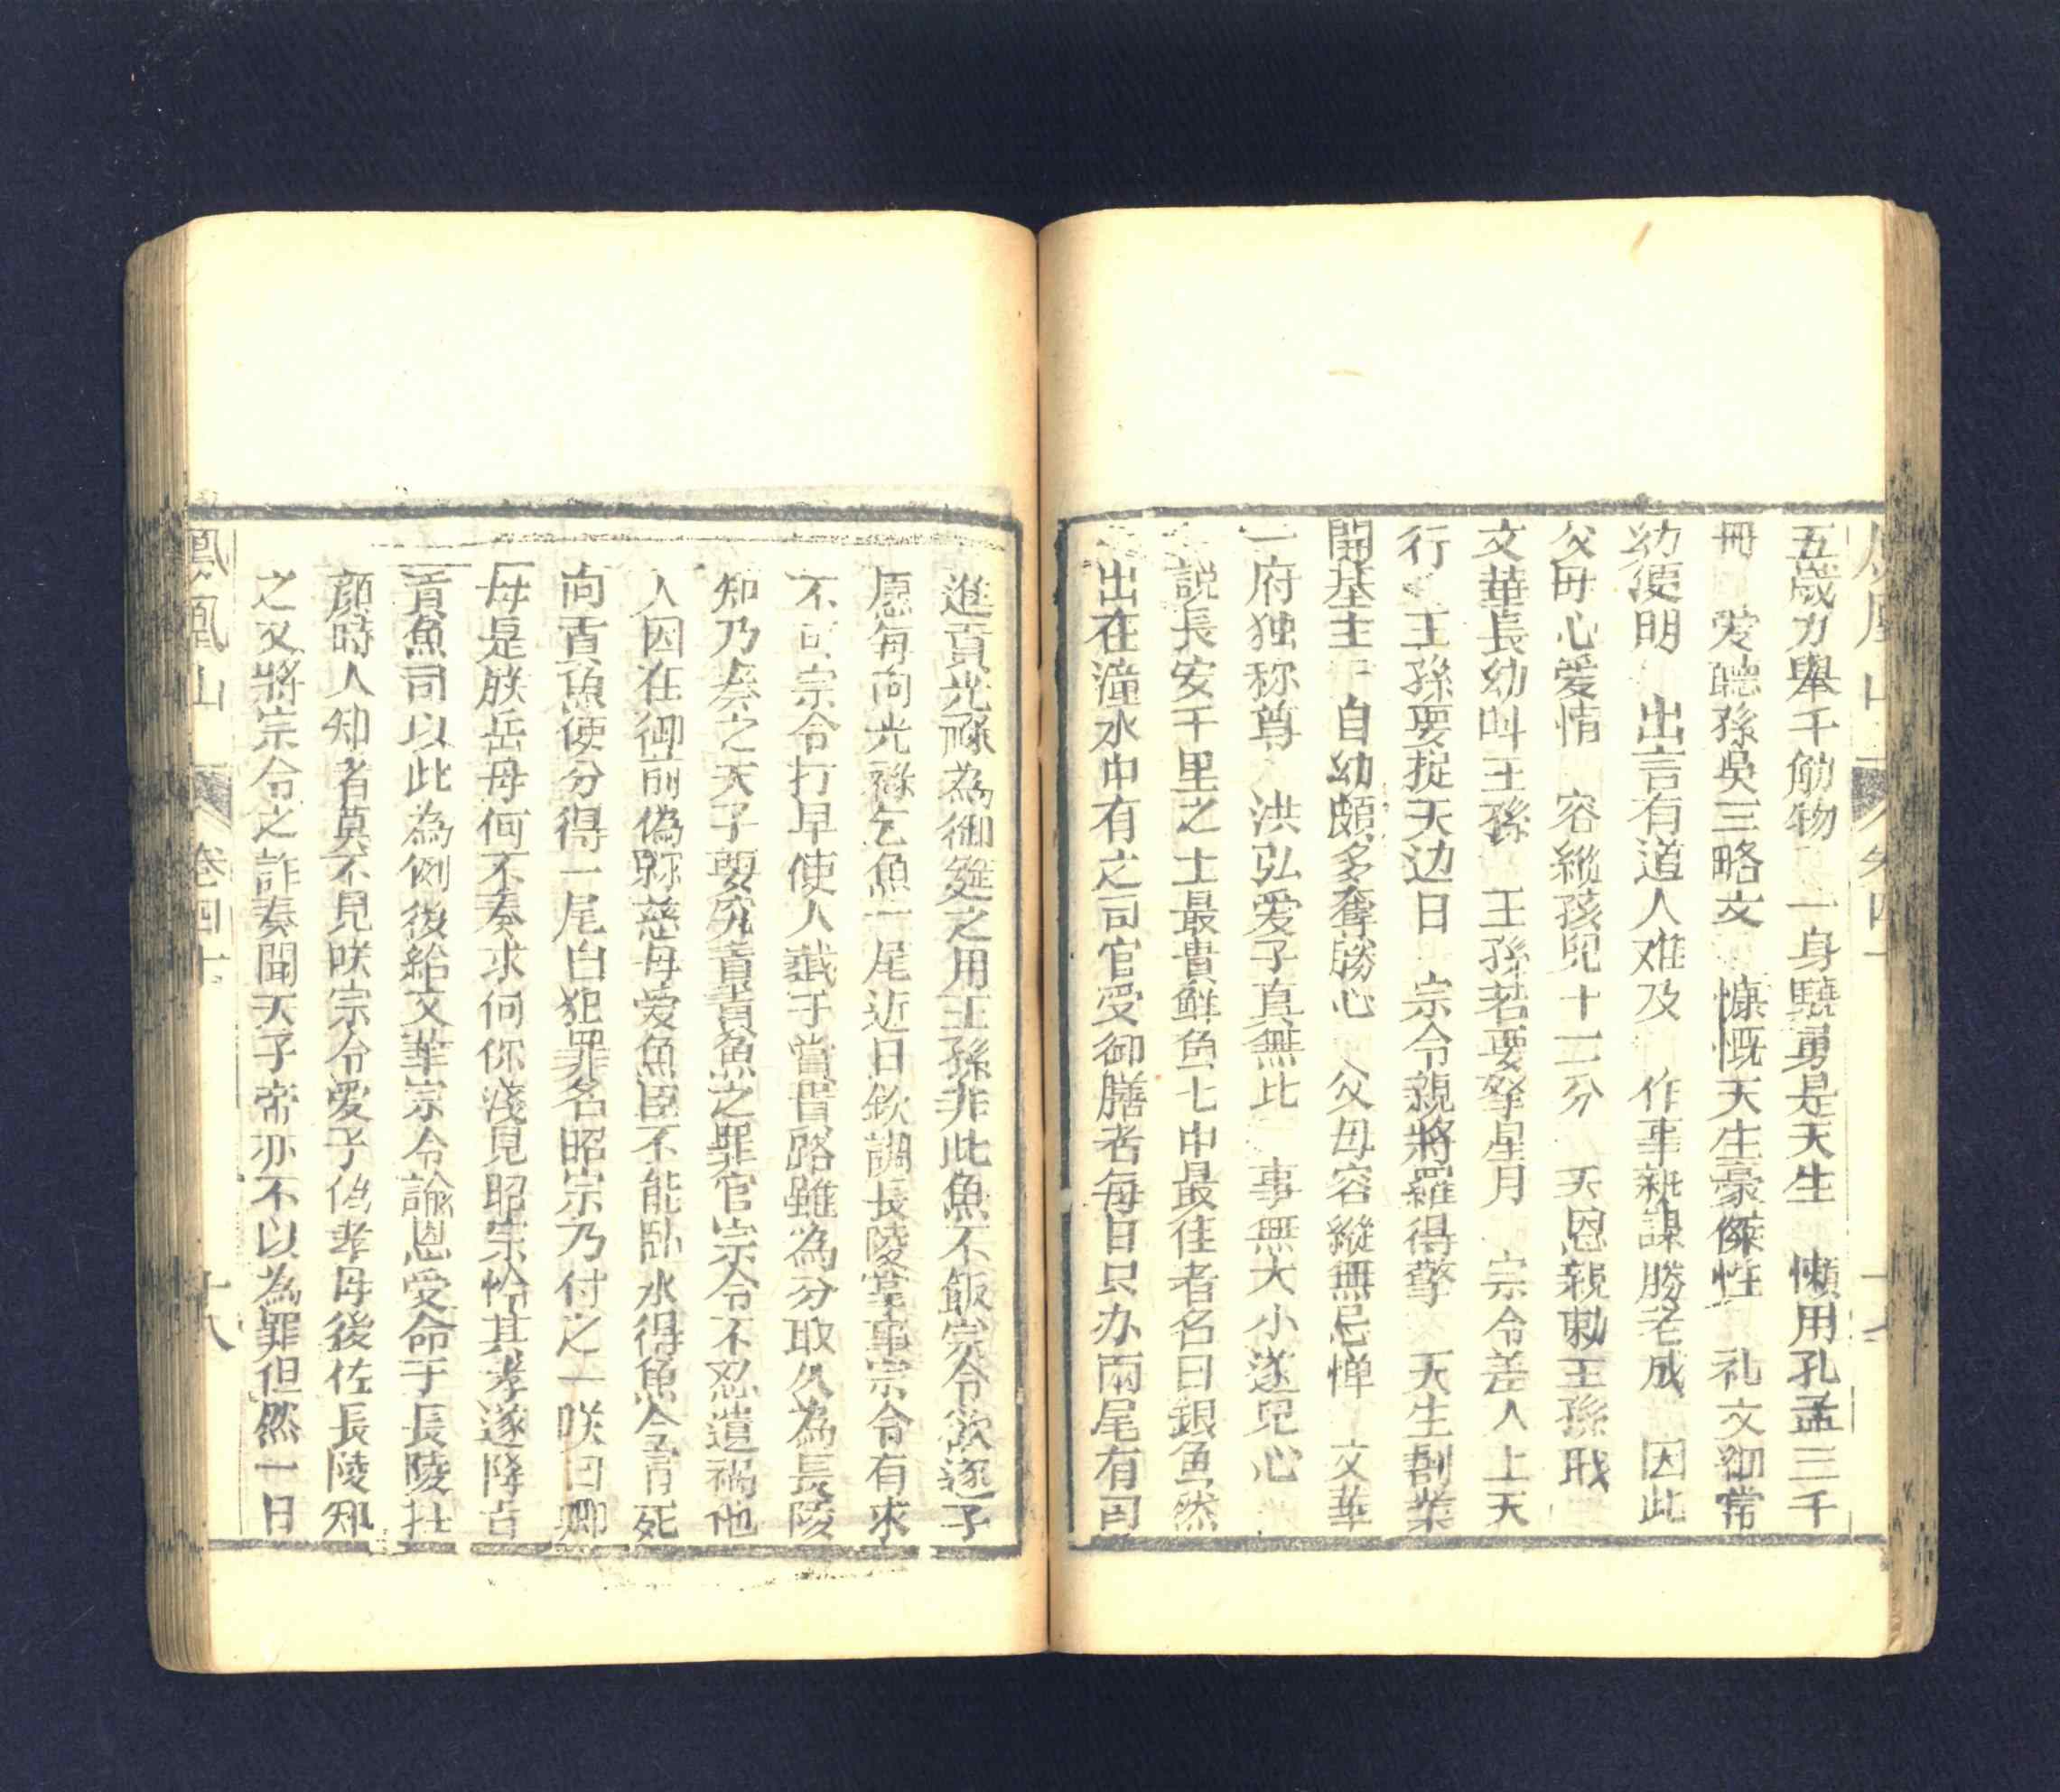 五歲力舉千觔物 一身驍勇是天生 懶用孔孟三千
冊 愛聽孫吳三略文 慷慨天生豪傑性 礼文卻常
幼便明 出言有道人难及 作事謀勝老成 因此
父母心愛惜 容縱孩兒十二分 天恩親勅王孫戝
文華長幼叫王孫 王孫若要拏星月 宗令差人上天
行 王孫要捉天边日 宗令親將羅得擎 天生創業
開基主 自幼頗多奪勝心 父母容縱無忌憚 文華
一府独称尊 洪弘愛子真無比 事無大小遂兒心
說長安千里之士最貴鮮魚七中最佳者名曰銀魚然
出在潼水中有之司官受御膳者每日只办兩尾有司
進貢光祿為御筵之用王孫非此魚不飯宗令欲逐子
愿每向光祿乞魚一尾近日欽調長陵掌事宗令有求
不可宗令打早使人截于當貢路雖為分取久為長陵
知乃奏之天子要究責貢魚之罪官宗令不忍遺禍他
人因在御前偽称慈母愛魚臣不能臥水得魚今言死
向貢魚使分得一尾自犯罪名昭宗乃付之一咲曰卿
母是朕岳母何不奏求何你淺見昭宗怜其孝遂降旨
貢魚司以此為例後給文華宗令謝恩受命于長陵
顏時人知者莫不見咲宗令愛子偽孝母後佐長陵知
之又將宗令之詐奏聞天子帝亦不以為罪但然一日
鳳凰山 卷四十 十八